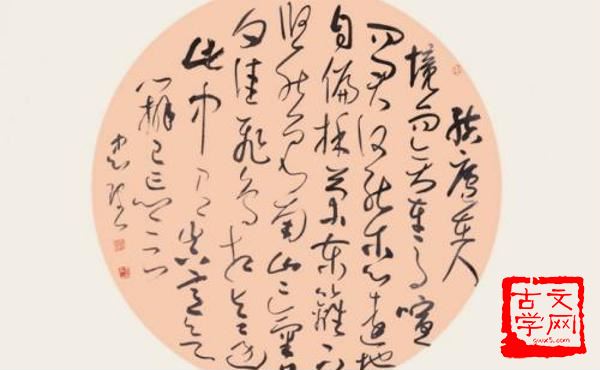 結廬在人
境而无车马喧
问君何能尔心远地
自偏採菊东篱下
悠然见南山山氣日
夕佳飞鸟相与还
此中有真意欲
辨已忘言
古文
学网
gwx5.com